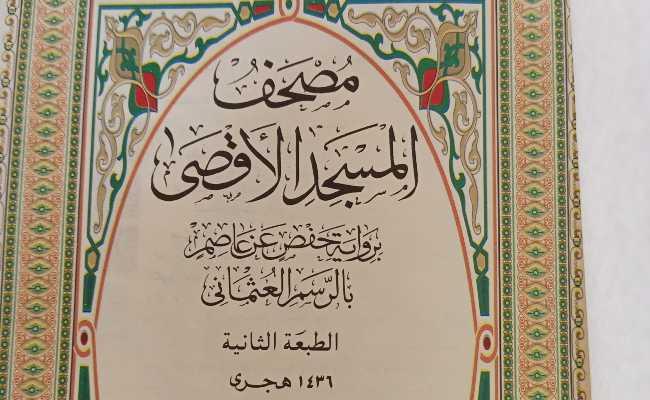 مُصْحَفُ
المَسْجِدِ الأَقْصَى
بِرِوَايَةِ حَفْصٍ عَنْ عَاصِمٍ
بِالرَّسْمِ العُثْمَانِي
الطبعَة الثانية
١٤٣٦ هجري